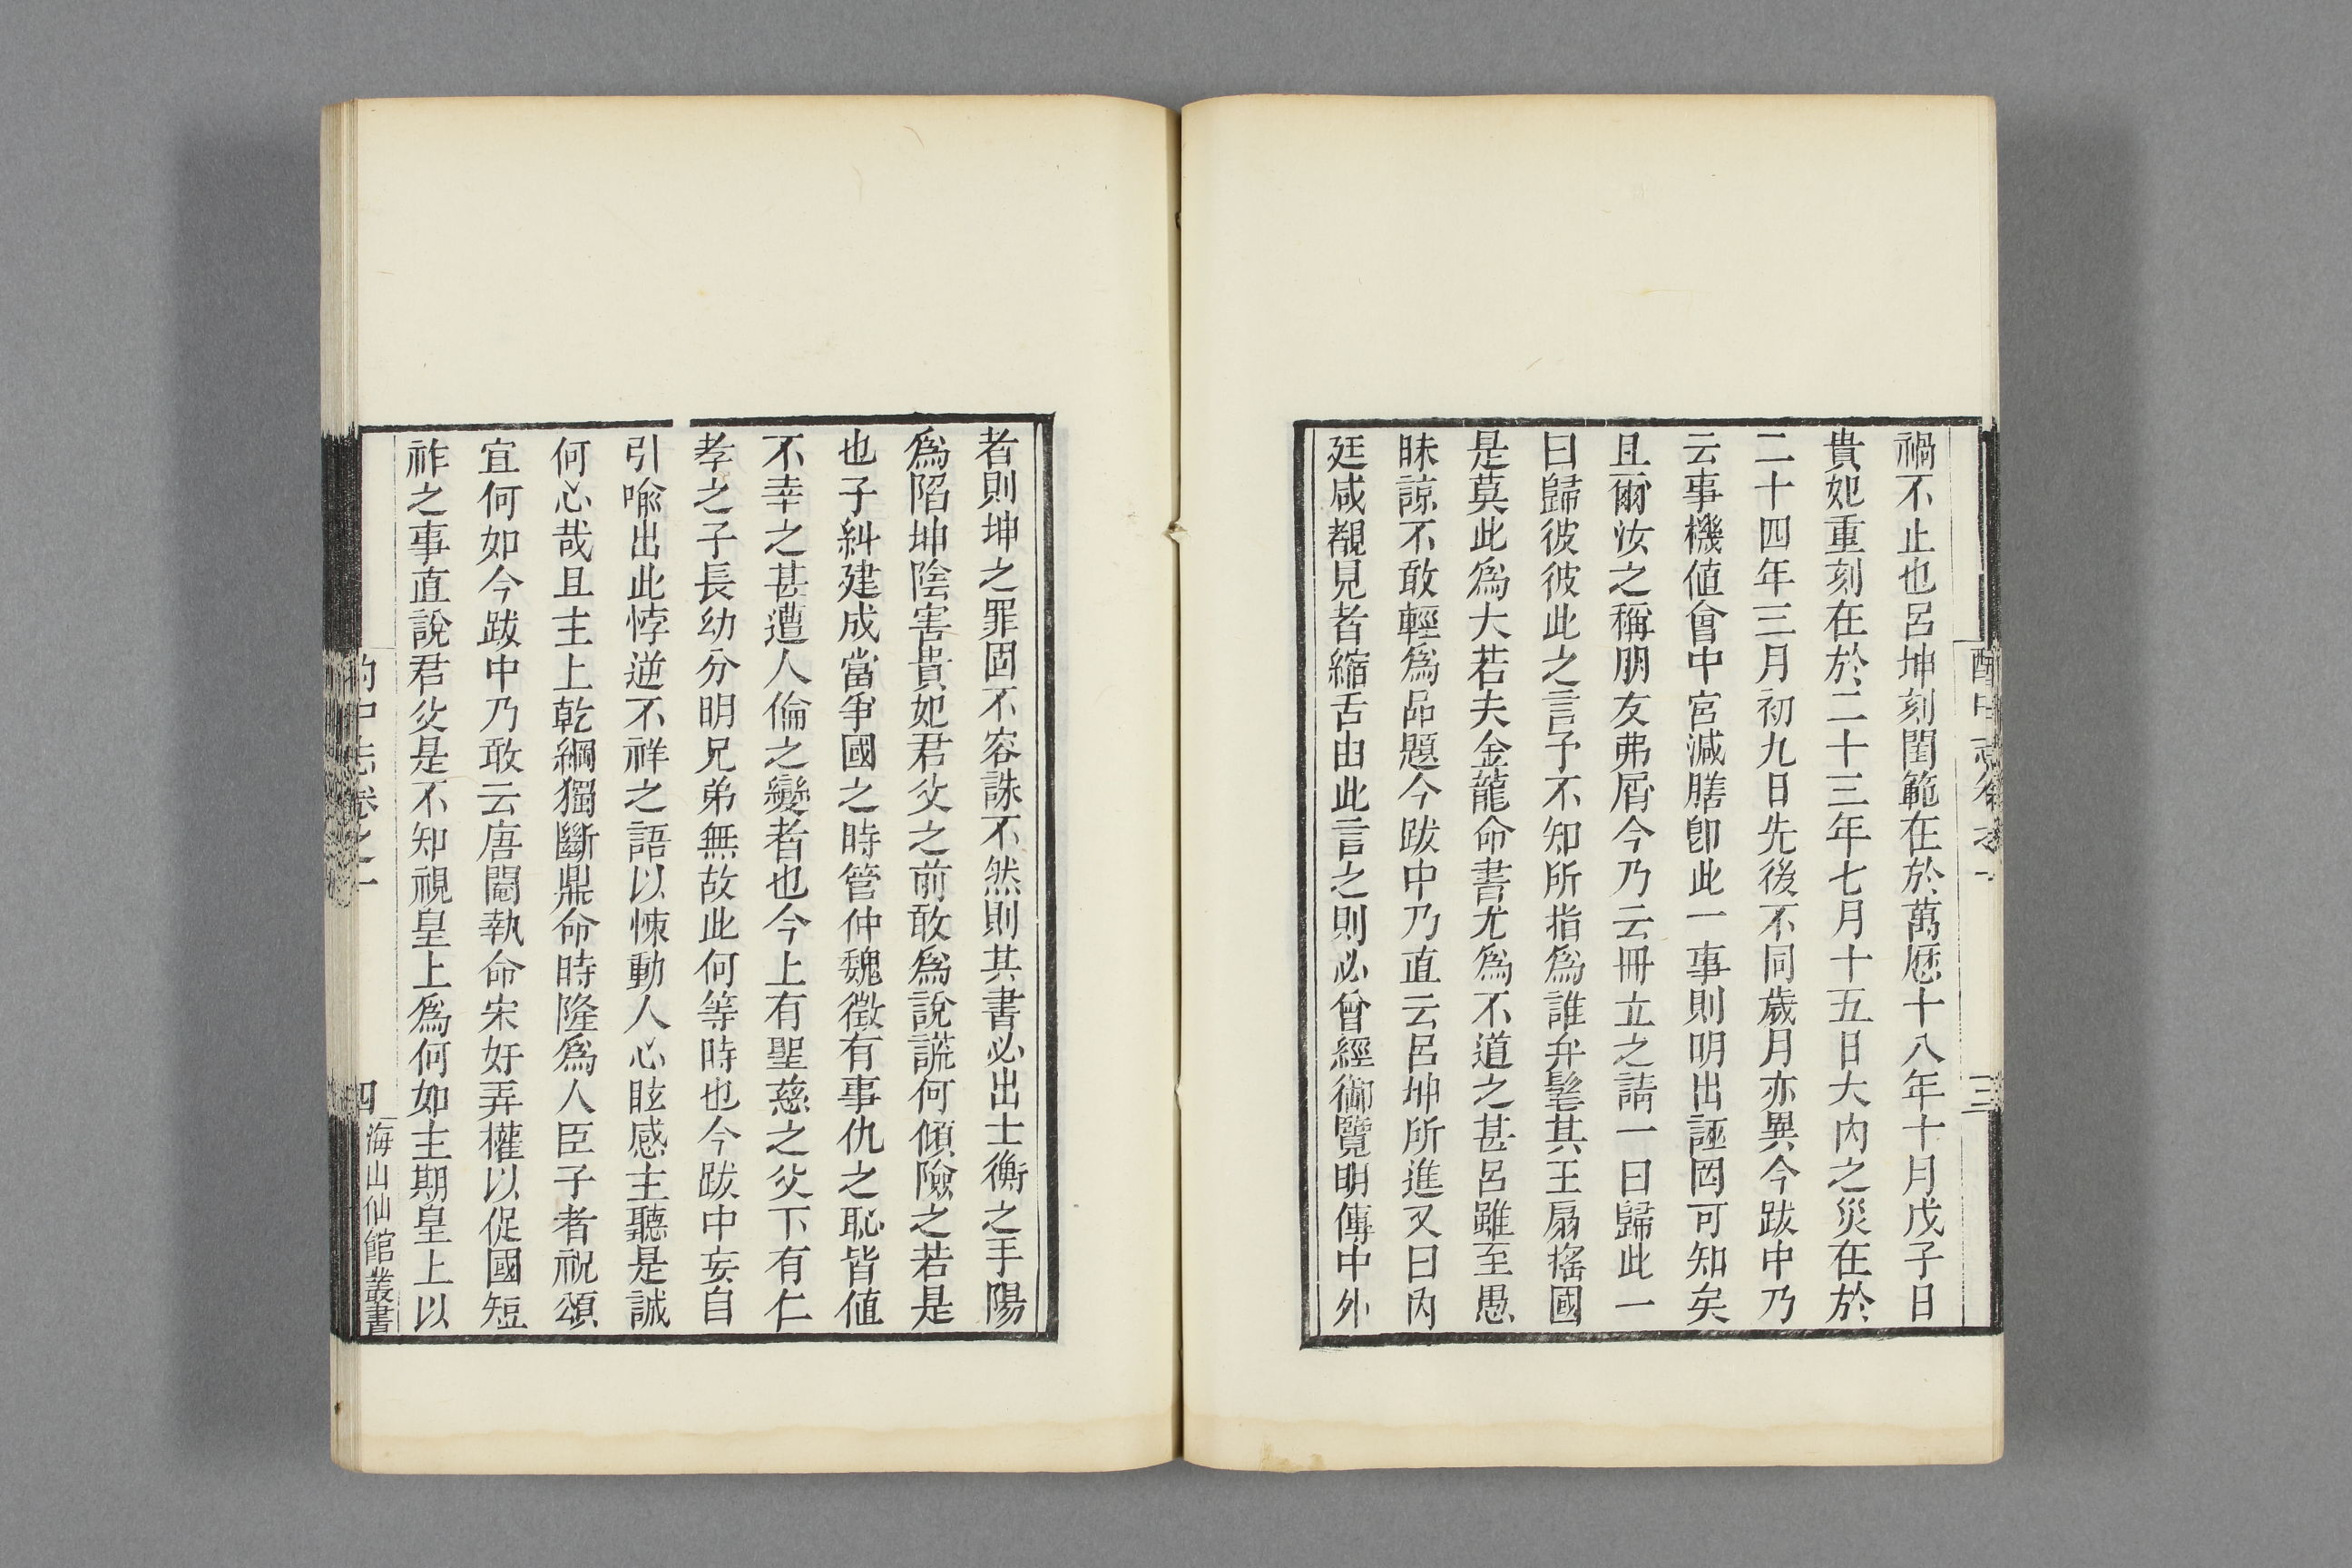 禍不止也呂坤刻閨範在於萬厯十八年十月戊子日
貴妃重刻在於二十三年七月十五日大內之災在於
二十四年三月初九日先後不同歲月亦異今跋中乃
云事機值會中宮減膳卽此一事則明出誣罔可知矣
且爾汝之稱朋友弗屑今乃云冊立之請一曰歸此一
曰歸彼彼此之言予不知所指爲誰弁髦其王扇搖國
是莫此爲大若夫金龍命書尤爲不道之甚呂雖至愚
昧諒不敢輕爲品題今跋中乃直云呂坤所進又曰內
廷咸覩見者縮舌由此言之則必曾經御覽明傳中外
者則坤之罪固不容誅不然則其書必出士衡之手陽
爲陷坤陰害貴妃君父之前敢爲說謊何傾險之若是
也子糾建成當爭國之時管仲魏徵有事仇之恥皆值
不幸之甚遭人倫之變者也今上有聖慈之父下有仁
孝之子長幼分明兄弟無故此何等時也今跋中妄自
引喻出此悖逆不祥之語以悚動人心眩惑主聽是誠
何心哉且主上乾綱獨斷鼎命時隆爲人臣子者祝頌
宜何如今跋中乃敢云唐閹執命宋好弄權以促國短
祚之事直說君父是不知視皇上爲何如主期皇上以
酌中志卷之一
四
海山仙館叢書